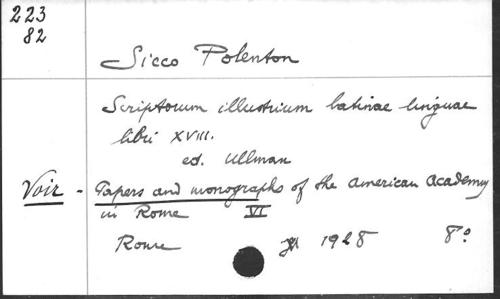 223
82
Sicco Polenton
Scriptorum illustrium latinae linguae
libri XVIII.
ed. Ullman
Voir - Papers and monographs of the American Academy
in Rome VI
Rome 1928 8°